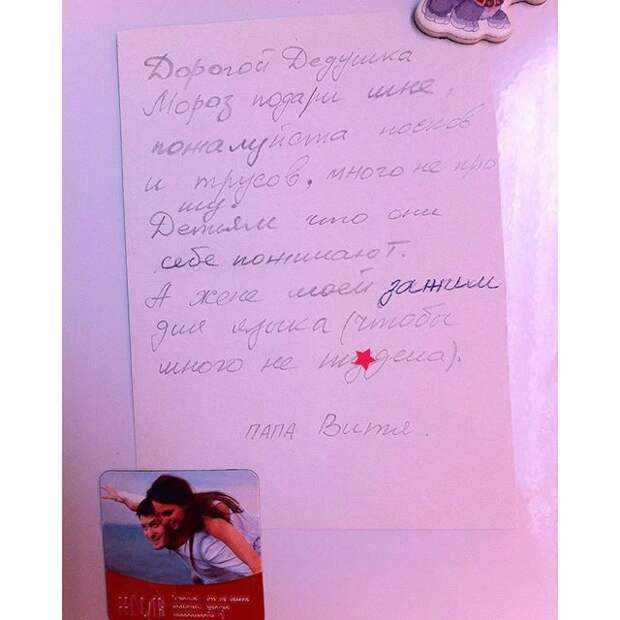 Дорогой Дедушка
Мороз подари мне,
пожалуйста носков
и трусов, много не про
шу.
Детям что они
себе пожелают.
А жене моей зажим
для языка (чтобы
много не дела).
папа Витя.